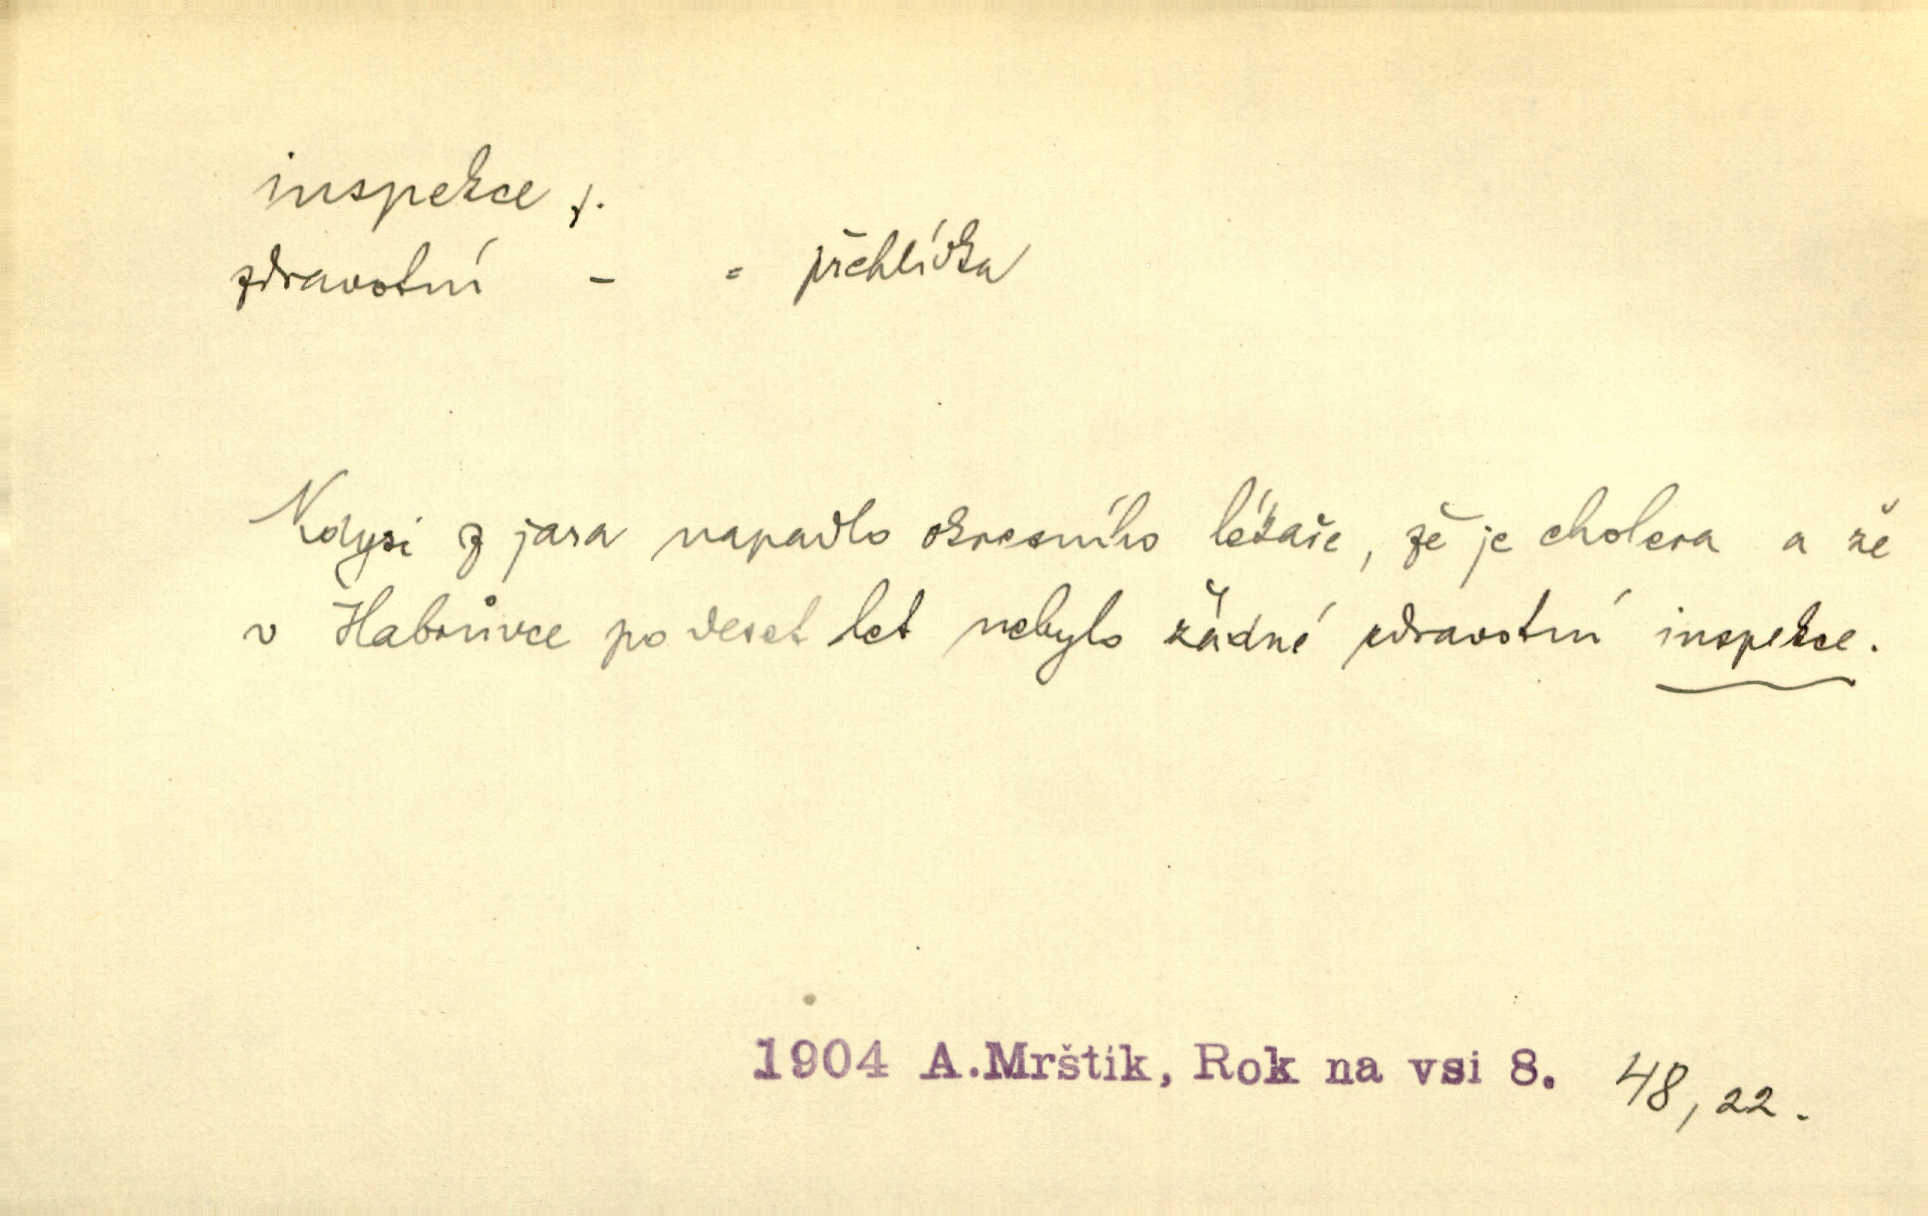 inspekce, f.
zdravotní - = přehlídka
Kdysi z jara napadlo okresního lékaře, že je cholera a že
v Habrůvce po deset let nebylo žádné zdravotní inspekce.
1904 A.Mrštík, Rok na vsi 8. 48, 22.